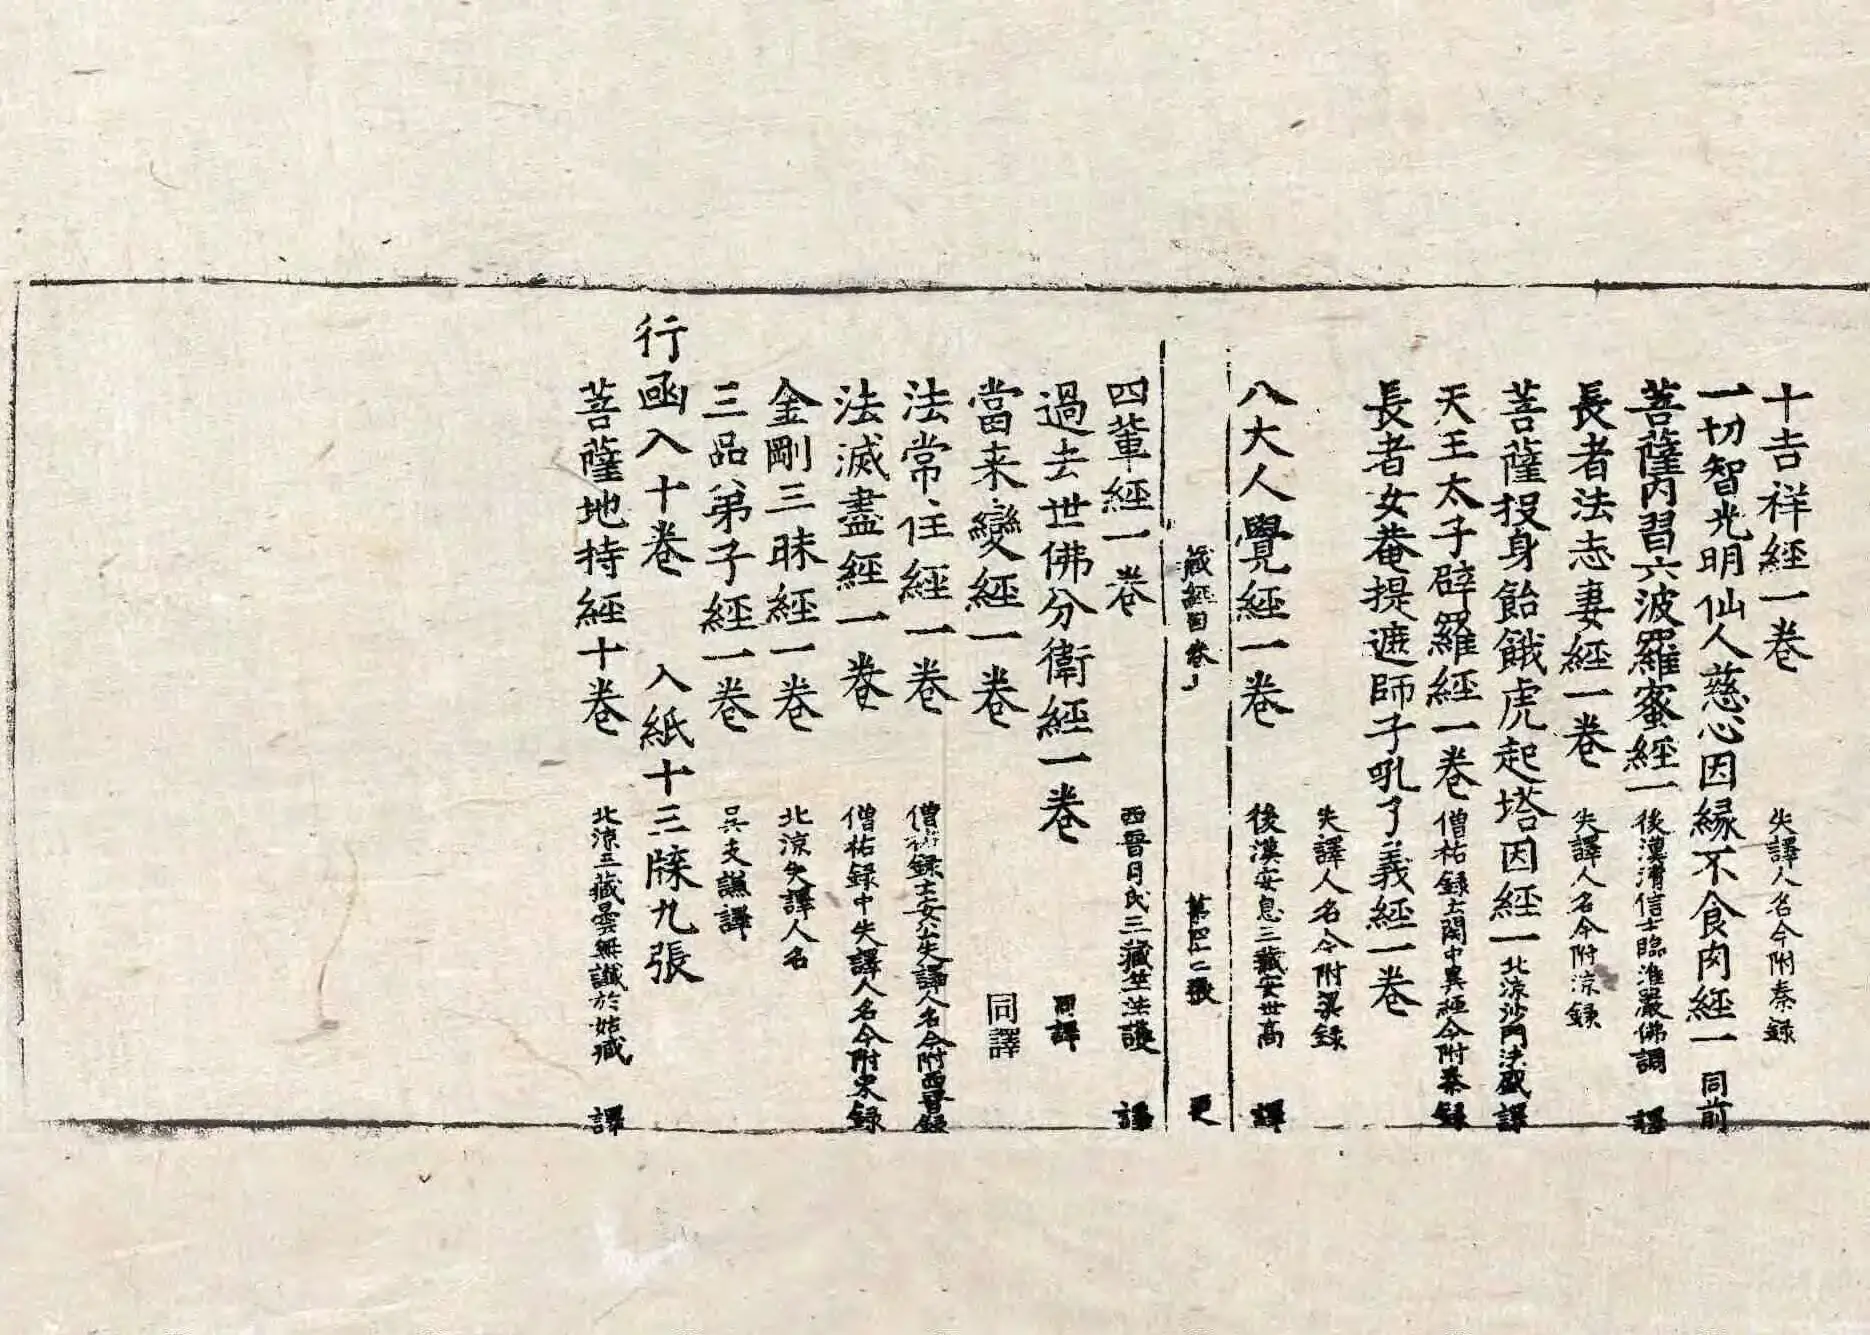 十吉祥經一卷 失譯人名今附秦録
一切智光明仙人慈心因縁不食肉經一 同前
菩薩内習六波羅蜜經一 後漢清信士臨淮嚴佛調 譯
長者法志妻經一卷 失譯人名今附涼録
菩薩投身飴餓虎起塔因經一 北涼沙門法盛譯
天王太子辟羅經一卷 僧祐録云關中異經今附秦録
長者女菴提遮師子吼了義經一卷
失譯人名今附梁録
八大人覺經一卷 後漢安息三藏安世高 譯
藏經目卷 第四二張 更
四輩經一卷 西晉月氏三藏竺法護 譯
過去世佛分衛經一卷 同譯
當来變經一卷 同譯
法常住經一卷 僧祐録云安公失譯人名今附西晉録
法滅盡經一卷 僧祐録中失譯人名今附宋録
金剛三昧經一卷 北涼失譯人名
三品弟子經一卷 吳支謙譯
行函入十卷 入紙十三牒九張
菩薩地持經十卷 北涼三藏曇無讖於姑臧 譯